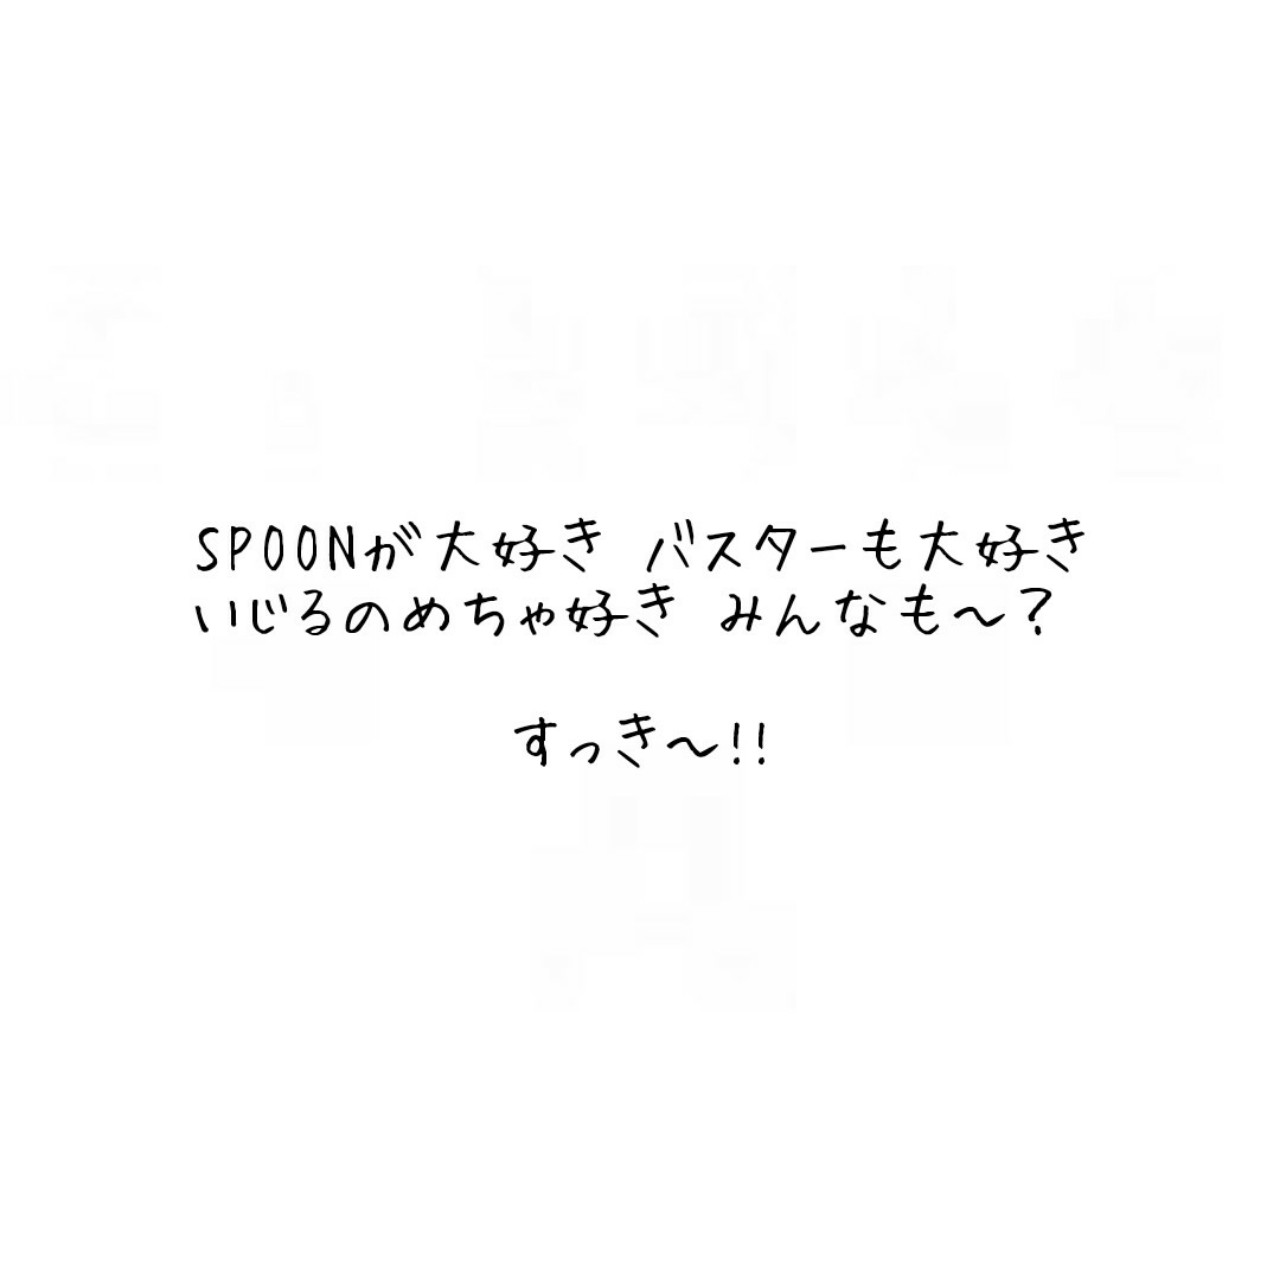 SPOONが大好き バスターも大好き
いじるのめちゃ好き みんなも～？
すっき～!!